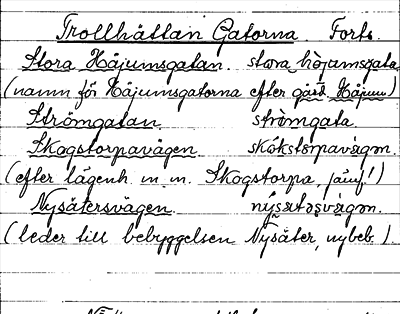 Trollhättan Gatorna Forts.
Stora Håjumsgatan. stora hòjumsgata
(namn för Håjumsgatorna efter gård Håjum)
Strömgatan. strömgata.
Skogstorpavägen skókstorpavægən.
(efter lägenh. m. m. Skogstorpa, jämf!)
Nysätersvägen. nýsætəsvægən.
(leder till bebyggelsen Nysäter, nybeb.).